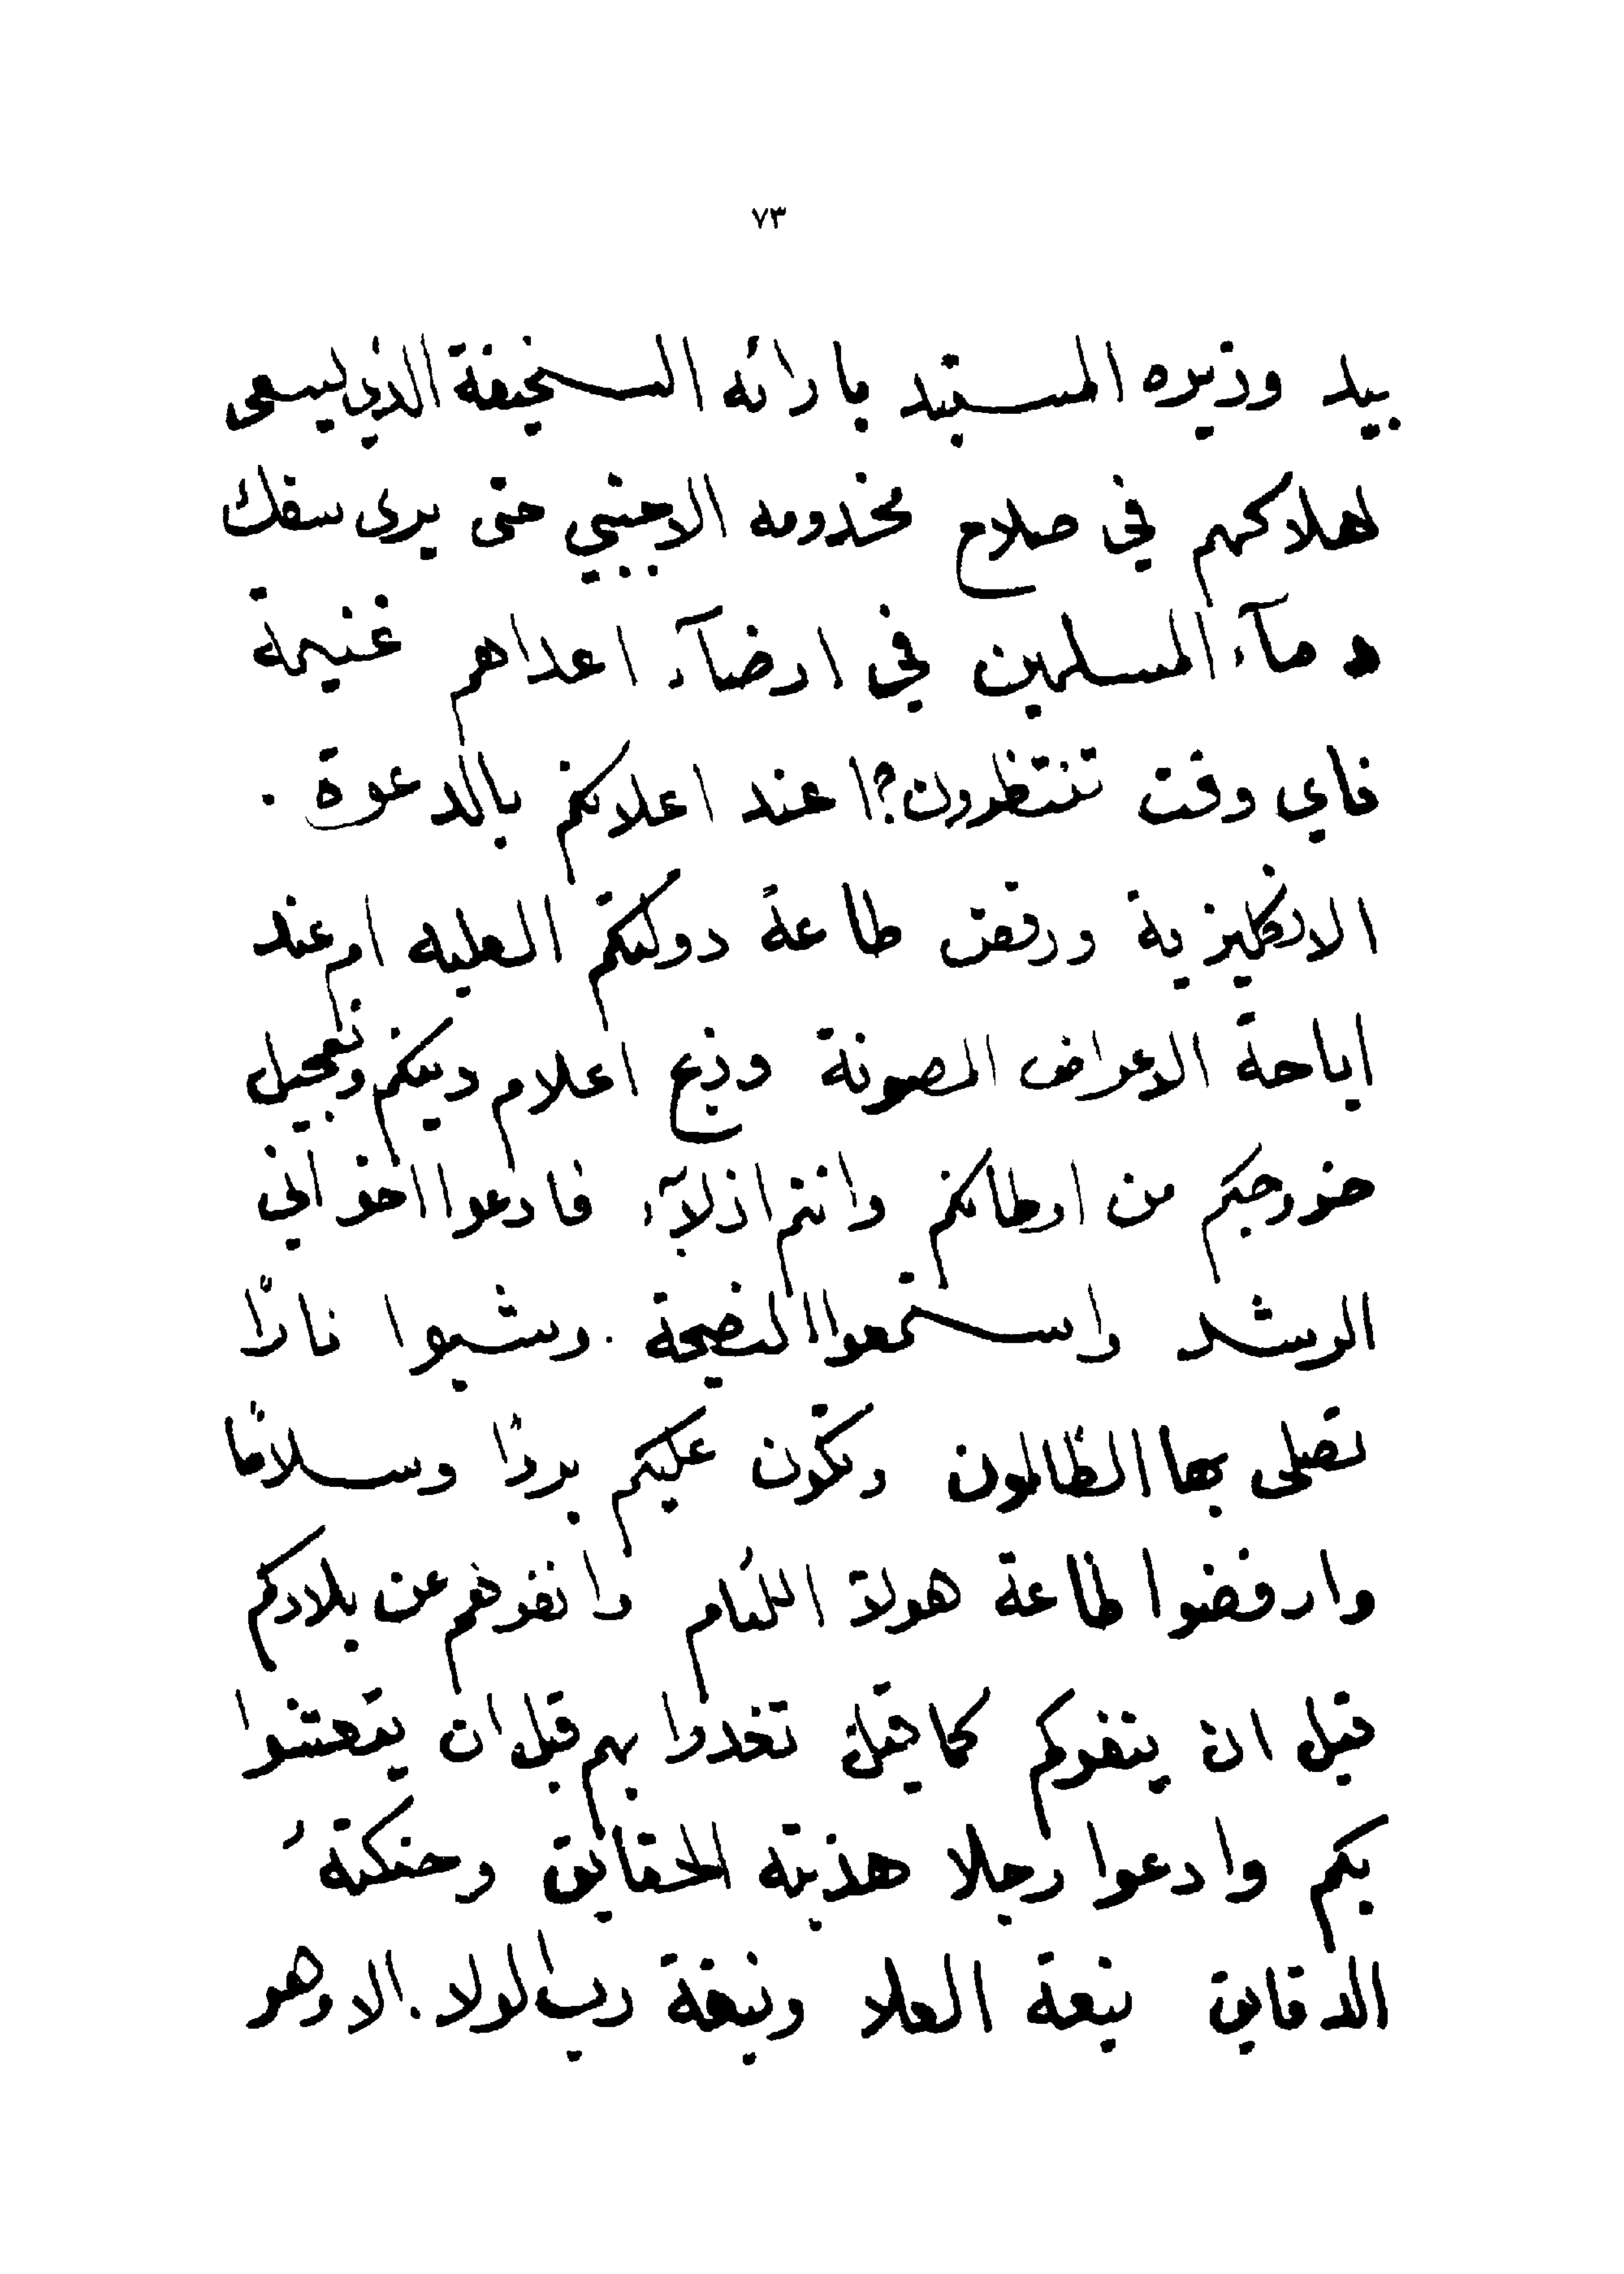 ٧٣
بيد وزيره المستبد بارائه السخيفة الذي ليسعى
لهلاككم في صلاح مخدومه الاجنبي حتى يرى سفك
دمآء المسلمين في ارضآء اعداهم غنيمة
فاي وقت تنتظرون؟ا عند اعلانكم بالدعوة .
الانكليزية ورفض طاعة دولتكم العليه ام عند
اباحة الاعراض المصونة وذبح اعلام دينكم وتعجيل
خروجكم من اوطانكم وانتم اذلآء فادعوا اخواني
الرشد واستمعوا النصيحة . وشبوا نارًا
تصلى بها الظالمون وتكون عليكم بردًا وسلامًا
وارفضوا طاعة هولآ اللئام وانفوهم عن بلادكم
قبل ان ينفوكم كما قيل تغدوا بهم قبل ان يتعشوا
بكم وادعوا رجلا هذبته الحقايق وحنكتهُ
الدقايق نبعة العلا ونبغة رب الولا . الا وهو